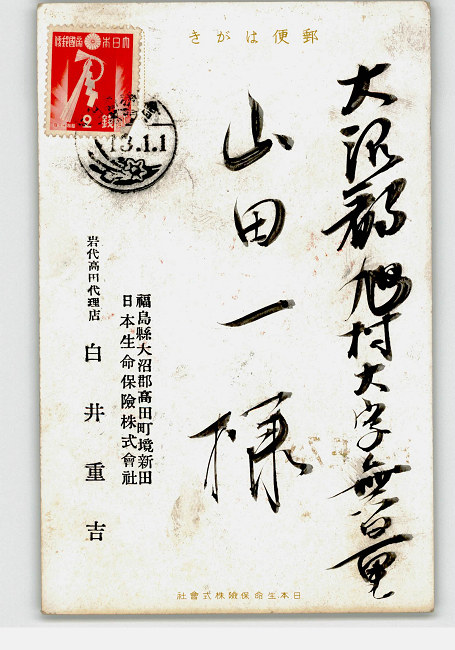 郵便はがき
大日本帝國郵便
2銭
13.1.1
大沼郡旭村大字無量
山田一様
福島縣大沼郡高田町境新田
日本生命保險株式會社
岩代高田代理店
白井重吉
日本生命保險株式會社